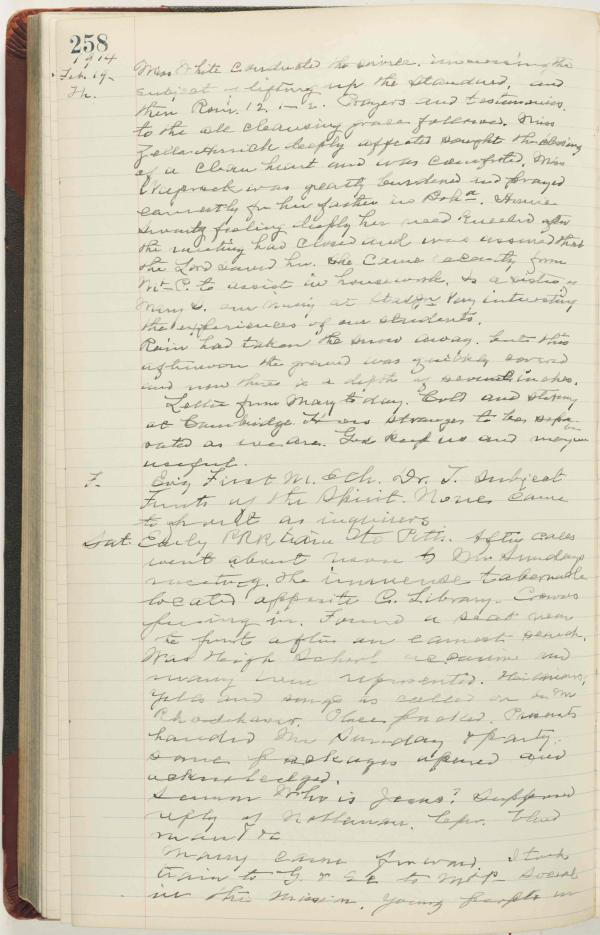 258
1914
Feb. 19- Miss White Conducted the service. impressing the
Th. subject of lifting up the Standard, and
then Rom. 12. 1-2. Prayers and testimonies
to the all cleansing grace followed. Miss
Zella deeply affected sought the blessing
of a Clean heart and was Comforted. Miss
was greatly burdened and prayed
earnestly for her father in Boha.
feeling deeply her need kneeled after
the meeting had closed and was assured that
the Lord saved her. She Came recently from
Mt. P. to assist in housework. Is a sister of
Mary S. our at Very interesting
the experiences of our students.
Rain had taken the snow away. but this
afternoon the ground was quickly covered
and now there is a depth of several inches.
Letter from Mary today. Cold and stormy
at Cambridge. It is so strange to be sepa-
rated as we are. God keep us and may we be
useful.
F. Evg First M. E. Ch. Dr. T. Subject
Fruits of the Spirit. None Came
to front as inquirers
Sat. Early PRR train to Pitts. After calls
went about noon to Mr Sunday's
meeting. The immense tabernacle
located opposite C. Library. Crowds
pressing in. Found a seat near
the front after an earnest search.
Was High School occasion and
many were represented.
Yells and songs as called on by Mr
Rhodeheaver. Place packed. Presents
handed Mr Sunday & party.
some packages opened and
acknowledged.
Sermon Who is Jesus? Supposed
reply of
man &c
Many came forward. I took
train to G. & EC to Mt P. Social
in the Mission. Young people in